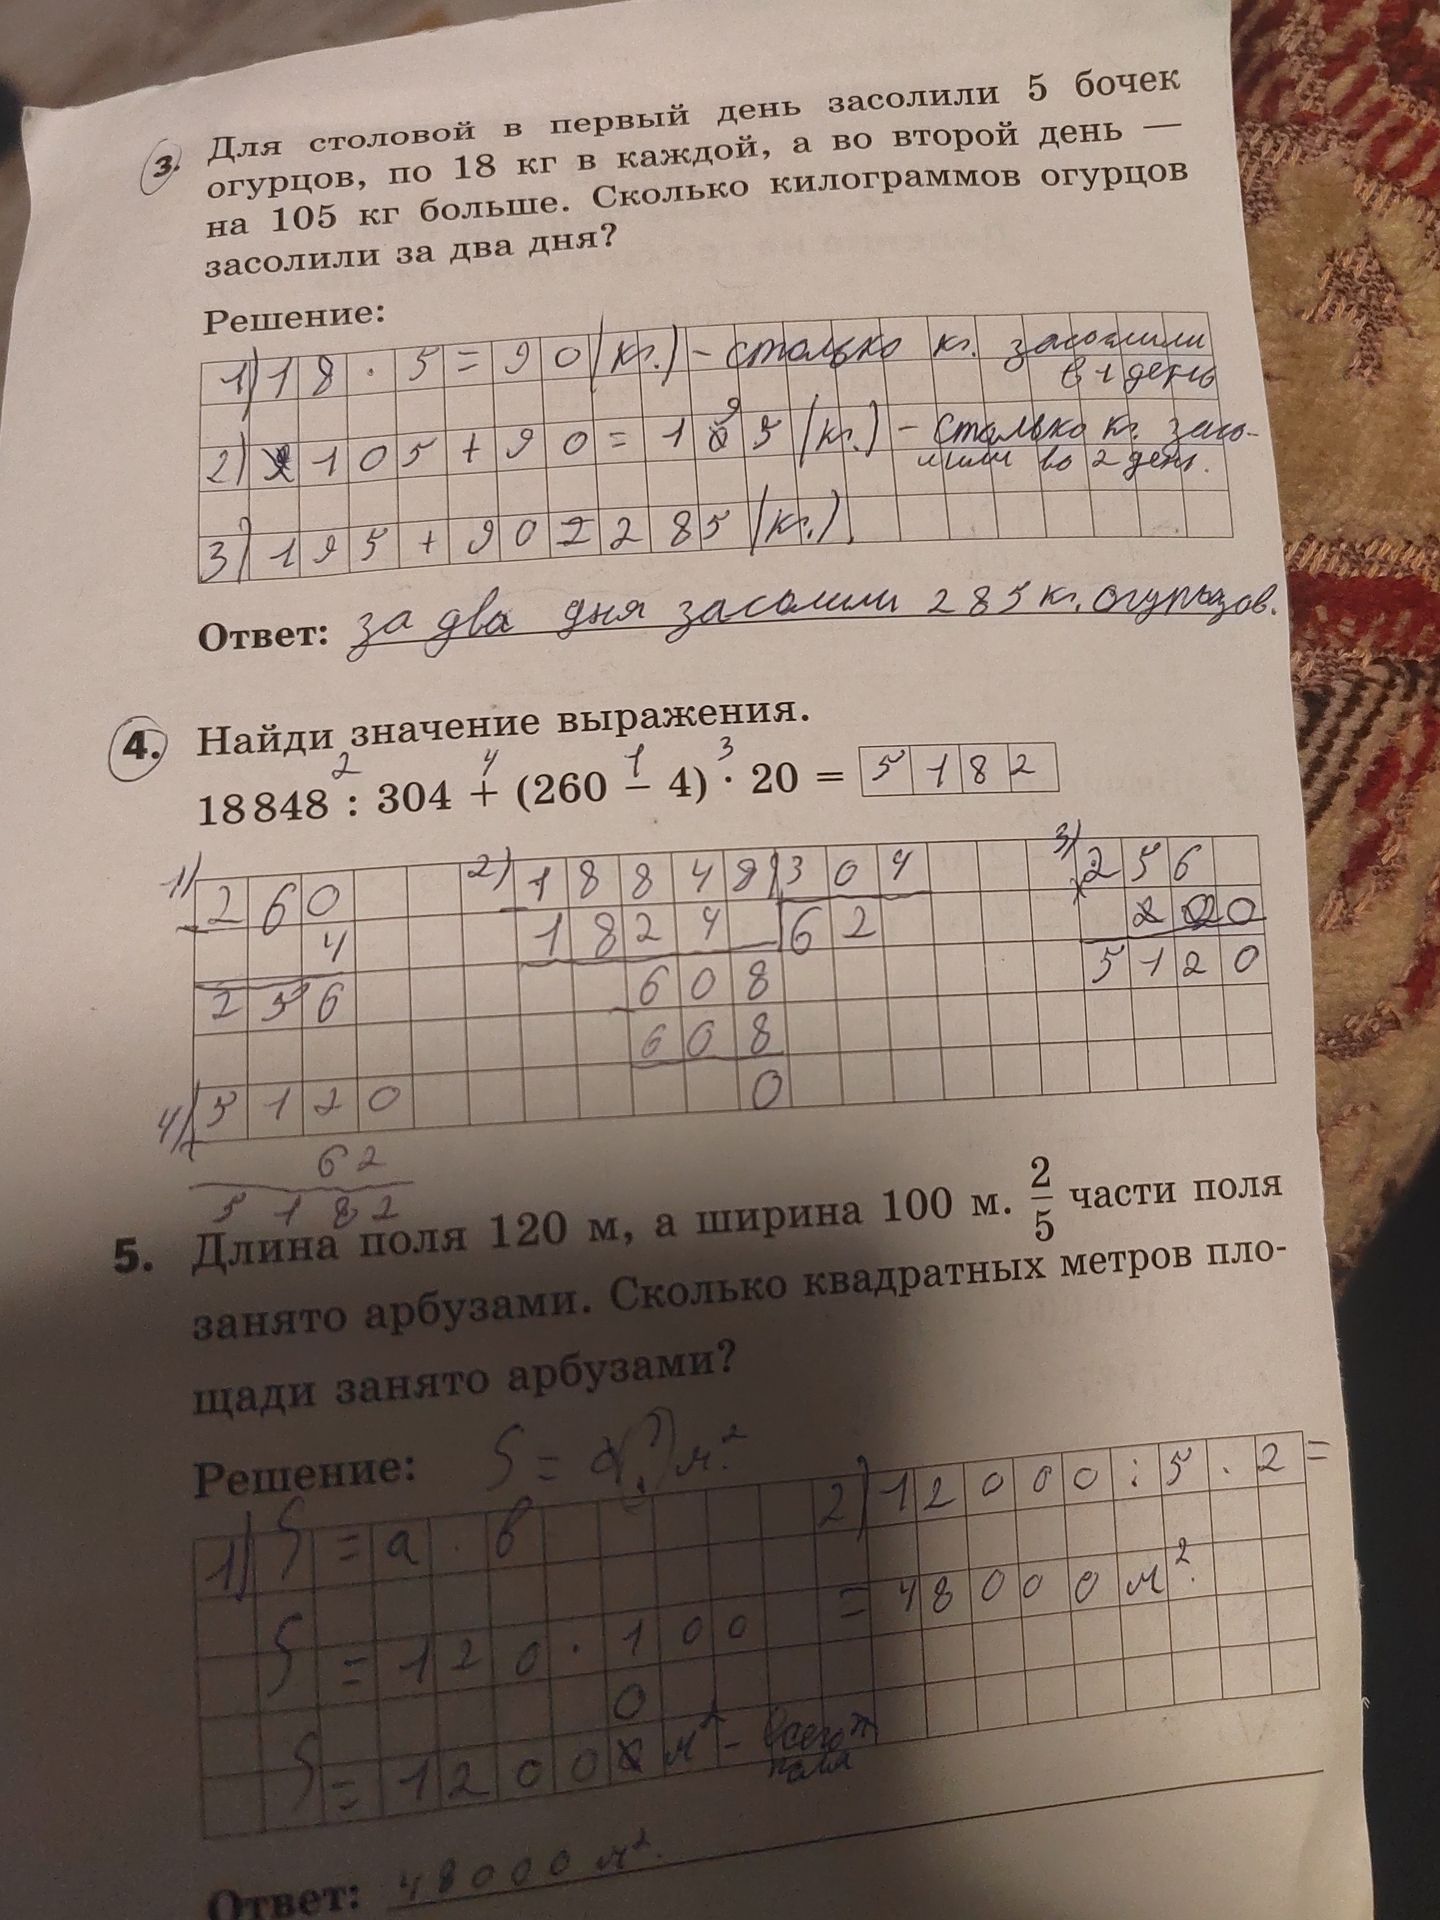 3. Для столовой в первый день засолили 5 бочек
огурцов, по 18 кг в каждой, а во второй день —
на 105 кг больше. Сколько килограммов огурцов
засолили за два дня?
Решение:
1) 18 · 5 = 90 (кг.) - столько кг. засолили
в 1 день
2) 105 + 90 = 195 (кг.) - столько кг. засо-
лили во 2 день.
3) 195 + 90 = 285 (кг.).
Ответ: за два дня засолили 285 кг. огурцов.
4. Найди значение выражения.
2 4 1 3
18 848 : 304 + (260 − 4) · 20 = 5182
1) 260 2) 18848 304 3) 256
- 4 - 1824 62 х 20
256 - 608 5120
608
4) 5120 0
+ 62
5182
5. Длина поля 120 м, а ширина 100 м. 2/5 части поля
занято арбузами. Сколько квадратных метров пло-
щади занято арбузами?
Решение: S = (?) м².
1) S = a · b 2) 12000 : 5 · 2 =
S = 120 · 100 = 48000 м².
0
S = 12000 м² - всего
поля
Ответ: 48000 м².